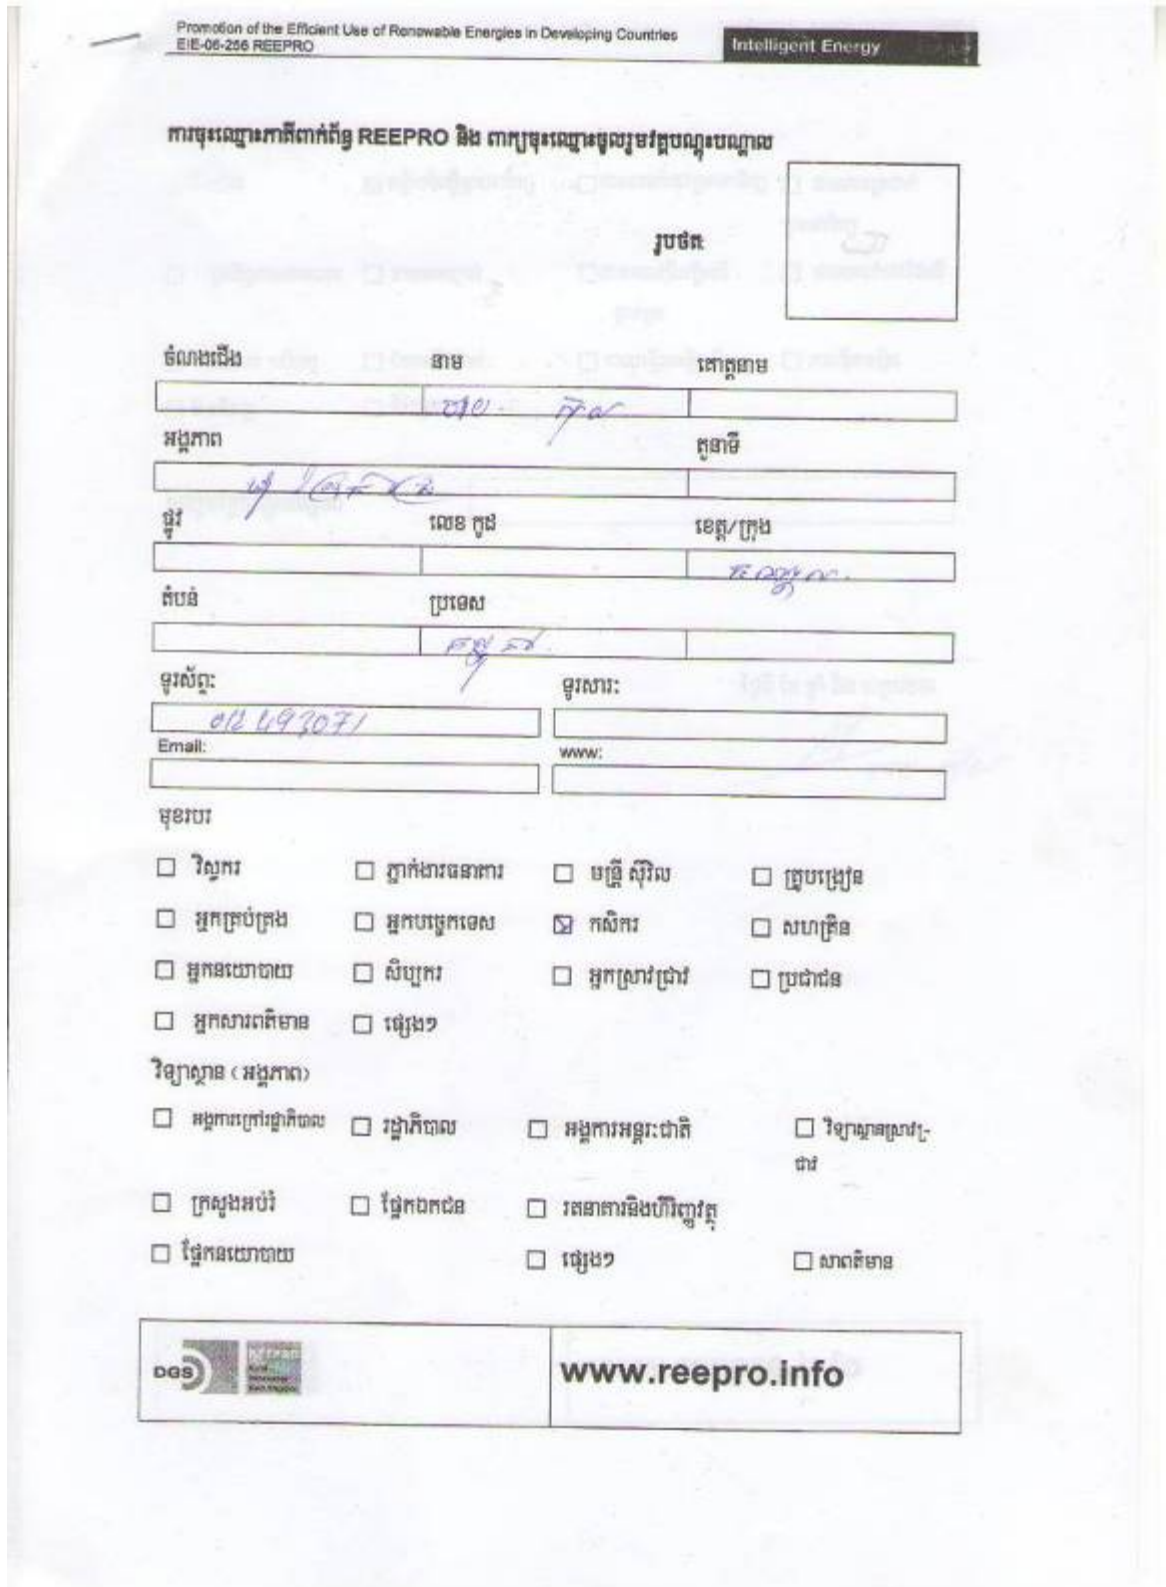 Promotion of the Efficient Use of Renewable Energies in Developing Countries
EIE-06-256 REEPRO
Intelligent Energy
ការចុះឈ្មោះភាគីពាក់ព័ន្ធ REEPRO និង ពាក្យចុះឈ្មោះចូលរួមវគ្គបណ្តុះបណ្តាល
រូបថត
ចំណងជើង នាម គោត្តនាម
អង្គភាព តួនាទី
ផ្លូវ លេខ កូដ ខេត្ត/ក្រុង
តំបន់ ប្រទេស
កម្ពុជា
ទូរស័ព្ទ: ទូរសារ:
012 493071
Email: www:
មុខរបរ
វិស្វករ ភ្នាក់ងារធនាគារ មន្ត្រី ស៊ីវិល គ្រូបង្រៀន
អ្នកគ្រប់គ្រង អ្នកបច្ចេកទេស កសិករ សហគ្រិន
អ្នកនយោបាយ សិប្បករ អ្នកស្រាវជ្រាវ ប្រជាជន
អ្នកសារពត៌មាន ផ្សេងៗ
វិទ្យាស្ថាន (អង្គភាព)
អង្គការក្រៅរដ្ឋាភិបាល រដ្ឋាភិបាល អង្គការអន្តរៈជាតិ វិទ្យាស្ថានស្រាវជ្រាវ
ក្រសួងអប់រំ ផ្នែកឯកជន រតនាគារនិងហិរញ្ញវត្ថុ
ផ្នែកនយោបាយ ផ្សេងៗ សាពត៌មាន
DGS
www.reepro.info